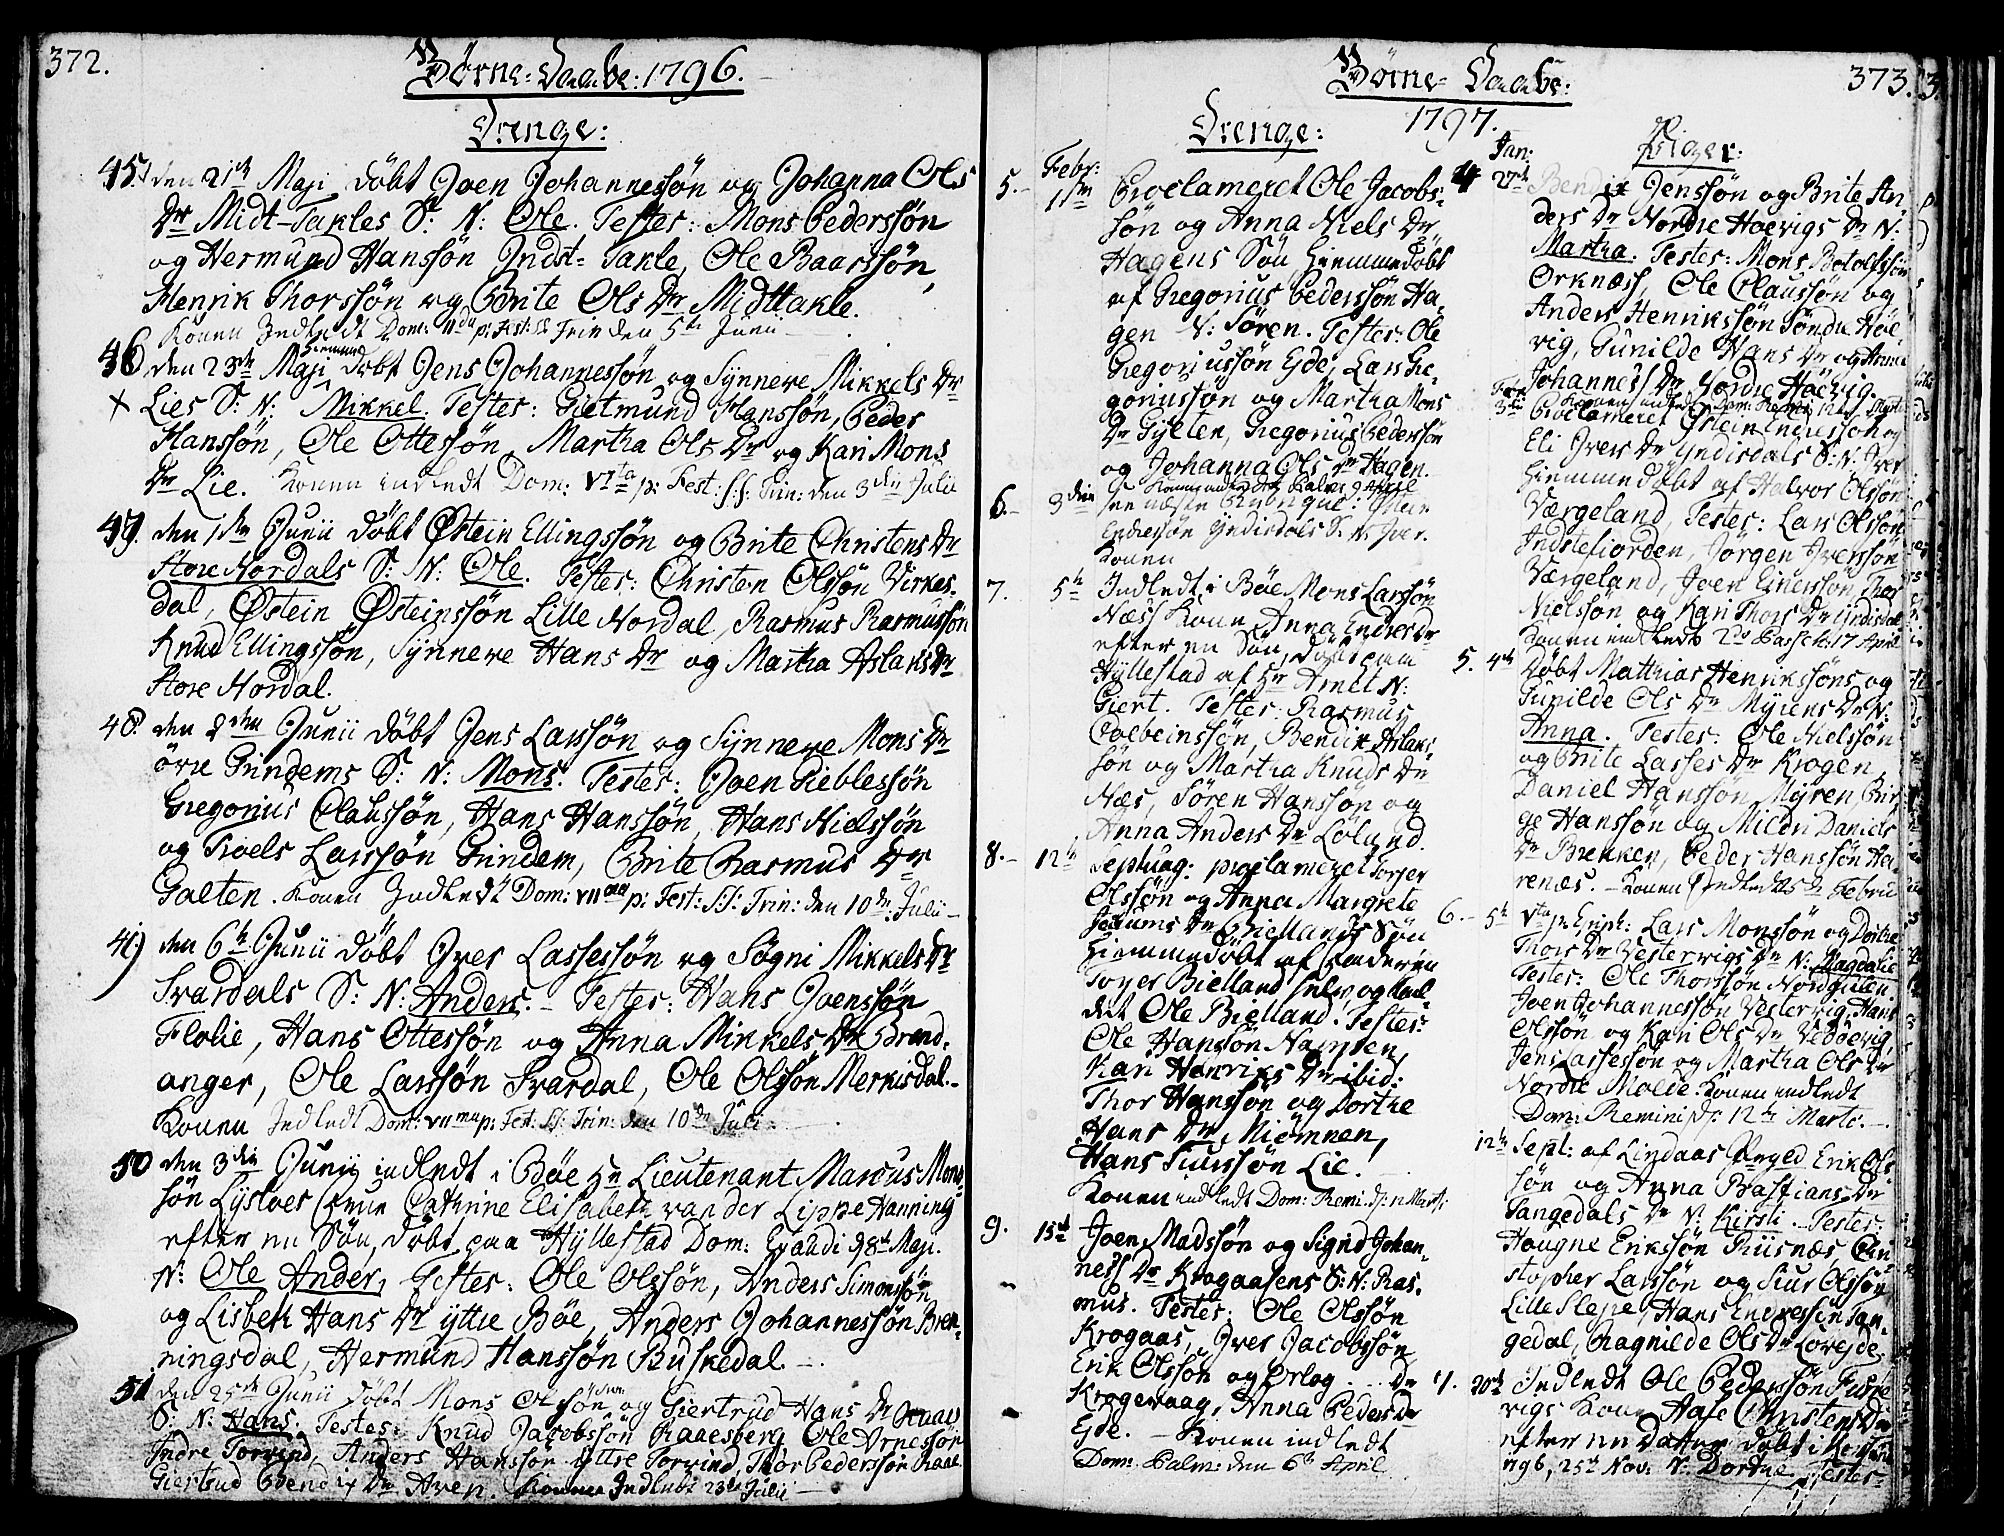 372.
Børne=Daabe: 1796.
Drenge:
45. den 21de Maji døbt Joen Johannessøn og Johanna Ols
Dr Midt-Takles S: N: Ole. Testes: Mons Pederssøn
og Hermund Hanssøn Indst-Takle, Ole Baarssøn,
Henrik Thorssøn og Brite Ols Dr Midttakle.
Konen Indledt Dom: IIda p: Fest: SS Trin den 5te Junii
46 den 23de Maji hiemme døbt Jens Johannessøn og Synneve Mikkels Dr
+ Lies S: N: Mikkel. Testes: Gietmund Hanssøn, Peder
Hanssøn, Ole Ottessøn, Martha Ols Dr og Kari Mons
Dr Lie. Konen indledt Dom: VIta p: Fest: S:S: Trin: den 3die Julii
47. den 1ste Junii døbt Østein Ellingssøn og Brite Christens Dr
Store Nordals S: N: Ole. Testes: Christen Olssøn Virkes-
dal, Østein Østeinssøn Lille Nordal, Rasmus Rasmussøn
Knud Ellingssøn, Synneve Hans Dr og Martha Aslaks Dr
Store Nordal.
48. den 2den Junii døbt Jens Larssøn og Synneve Mons Dr
øvre Grindems S: N: Mons. Testes: Joen Pieblessøn
Gregorius Olaussøn, Hans Hanssøn, Hans Nielssøn
og Troels Larssøn Grindem, Brite Rasmus Dr
Galten. Konen Indledt Dom: VIIma p: Fest: S:S: Trin: den 10de Julii
49 den 6te Junii døbt Iver Lassessøn og Søgni Mikkels Dr
Svardals S: N: Anders. Testes: Hans Joenssøn
Flolie, Hans Ottessøn og Anna Mikkels Dr Brend-
anger, Ole Larssøn Svardal, Ole Olssøn Merkisdal.
Konen Indledt Dom: VIIma p: Fest: S:S: Trin: den 10de Juli
50 den 3die Junii indledt i Bøe Hr Lieutenant Marcus Mons-
søn Lystoes Frue Cathrine Elisabeth van der Lippe Hanning
efter en Søn, døbt paa Hyllestad Dom: Exaudi 28de Maji.
N: Ole Ander, Testes: Ole Olssøn, Anders Simonssøn
og Lisbeth Hans Dr yttre Bøe, Anders Johannessøn Bren-
ningsdal, Hermund Hanssøn Buskedal.
51 den 25de Junii døbt Mons Olssøn og Giertrud Hans Dr
S: N: Hans. Testes: Knud Jacobssøn Raaesberg Ole Arnessøn
Indre Torvind, Anders Hanssøn yttre Torvind, Thor Pederssøn
Giertrud Bendix Dr Aven. Konen Indledt 23de Julii
Børne=Daabe:
373.
1797.
Drenge:
Febr:
5. 1ste Proclameret Ole Jacobs-
søn og Anna Niels Dr
Hagens Søn hiemmedøbt
af Gregorius Pederssøn Ha-
gen N: Søren. Testes: Ole
Gregoriussøn Eyde, Lars Gre-
goriussøn og Martha Mons
Dr Gylten, Gregorius Pederssøn
og Johanna Ols Dr Hagen.
Konen indledt Palm: 9 April
6. 3die see næste Rubrique: Østein
Endressøn Yndisdals S: N: Iver.
Konen
7. 5te Indledt i Bøe Mons Larssøn
Næss Kone Anna Endres Dr
efter en Søn, døbt paa
Hyllestad af Hr Arnet N:
Giert. Testes: Rasmus
Colbeinssøn, Bendix Aslaks-
søn og Martha Knuds Dr
Næs, Søren Hanssøn og
Anna Anders Dr Lølund.
8. 12te Septuag: proclameret Torger
Olssøn og Anna Margrete
Dr Biellands Søn
hiemmedøbt af Faderen
Torger Bielland selv, og kal-
det Ole Bielland. Testes:
Ole Hanssøn
Kari Henriks Dr ibid:
Thor Hanssøn og Dorthe
Hans Dr Miømnen,
Hans Siurssøn Lie.
Konen indledt Dom: Remi: d: 12 Marti:
9. 15de Joen Madssøn og Signd Johan-
ness Dr Krogaasens S: N: Ras-
mus. Testes: Ole Olssøn
Krogaas, Iver Jacobssøn
Erik Olssøn og Ørlog . . . Dr
Krogevaag, Anna Peders Dr
Eyde. Konen indledt
Dom: Palm: den 6te April
Piger:
Jan:
4 27de Bendix Jenssøn og Brite An-
ders Dr Nordre Høevigs Dr N:
Martha. Testes: Mons Botolfssøn
Ørknæss, Ole Claussøn og
Anders Henrikssøn Søndre Høe-
vig, Gunilde Hans Dr og Anna
Johanness Dr Nordre Høevig.
Konen indledt Dom: Remi: 12te Marti
Febr: 3die Proclameret Østein Endressøn og
Eli Ivers Dr Yndisdals S: N: Iver
hiemmedøbt af Halvor Olssøn
Værgeland, Testes: Lars Olssøn
Indstefiorden, Jørgen Iverssøn
Værgeland, Joen Einerssøn, Thor
Nielssøn og Kari Thors Dr Yndisdal
Konen indledt 2do Pasch: 17 April
5. 4de Døbt Matthias Henrikssøns og
Gunilde Ols Dr Myrens Dr N:
Anna. Testes: Ole Nielssøn
og Brite Lasses Dr Krogen,
Daniel Hanssøn Myren, Bir-
ge Hanssøn og Mildri Daniels
Dr Brekken, Peder Hanssøn Ha-
renæs. Konen Indledt 25de Febru
6. 5te Vta p: Epiph: Lars Monssøn og Dorthe
Thors Dr Vestervigs Dr N: Magdalie
Testes: Ole Thorssøn Nordgulen
Joen Johannessøn Vestervig, Hans
Olssøn og Kari Ols Dr Vedøevig,
Jens Lassessøn og Martha Ols Dr
Nordre Molde. Konen indledt
Dom: Reminis: d: 12te Marti.
12te Sept: af Lindaas Præged Erik Ols
søn og Anna Bastians Dr
Tangedals Dr N: Kirsti. Testes:
Hougne Erikssøn Riisnæs, Chri-
stopher Larssøn og Siur Olssøn
Lille Slepe, Hans Endressøn Tan-
gedal, Ragnilde Ols Dr
7. 20de Indledt Ole Pederssøn
vigs Kone Aase Christens Dr
efter en Datter døbt i
796, 25de Nov: N: Dorthe, Testes-